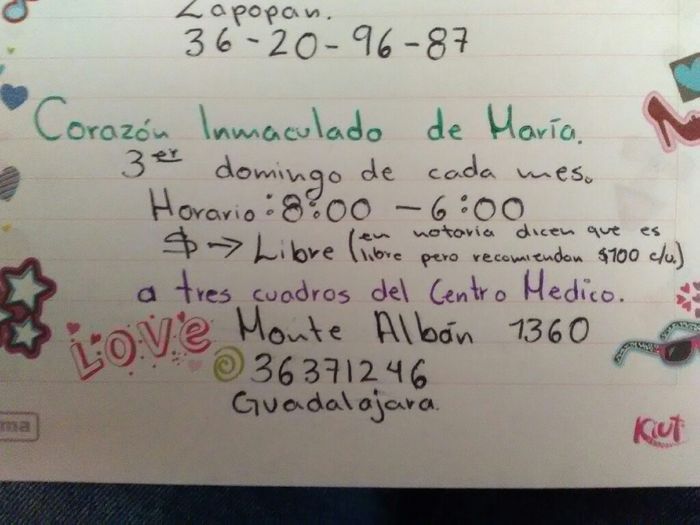 Zapopan.
36-20-96-87
Corazón Inmaculado de María.
3er domingo de cada mes.
Horario: 8:00 - 6:00
$ → Libre (en notaria dicen que es
libre pero recomiendan $100 c/u.)
a tres cuadros del Centro Medico.
LOVE Monte Albán 1360
36371246
Guadalajara.
ma
Kiut